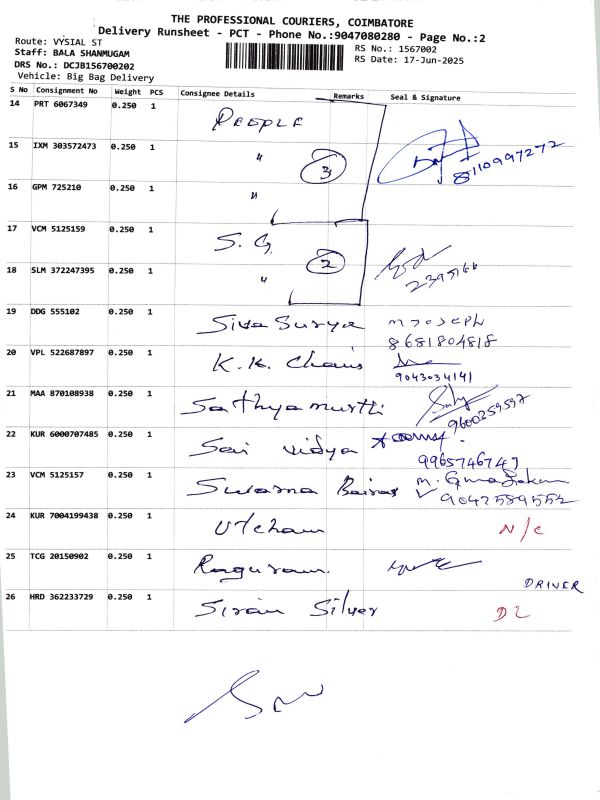 THE PROFESSIONAL COURIERS, COIMBATORE
Delivery Runsheet - PCT - Phone No.:9047080280 - Page No.:2
Route: VYSIAL ST
Staff: BALA SHANMUGAM
DRS No.: DCJB156700202
Vehicle: Big Bag Delivery
RS No.: 1567002
RS Date: 17-Jun-2025
S No Consignment No Weight PCS Consignee Details Remarks Seal & Signature
14 PRT 6067349 0.250 1 PEOPLE
15 IXM 303572473 0.250 1 " 3 8110997272
16 GPM 725210 0.250 1 "
17 VCM 5125159 0.250 1 S. G.
18 SLM 372247395 0.250 1 " 2 2395166
19 DDG 555102 0.250 1 Siva Surya M JOSEPH
8681804818
20 VPL 522687897 0.250 1 K.K. Chains
9043034141
21 MAA 870108938 0.250 1 Sathyamurthi
9600259597
22 KUR 6000707485 0.250 1 Sai Vidya
9965746747
23 VCM 5125157 0.250 1 Swarna
9042589552
24 KUR 7004199438 0.250 1 Utcham N/C
25 TCG 20150902 0.250 1 Raguram
DRIVER
26 HRD 362233729 0.250 1 Siran Silver DL